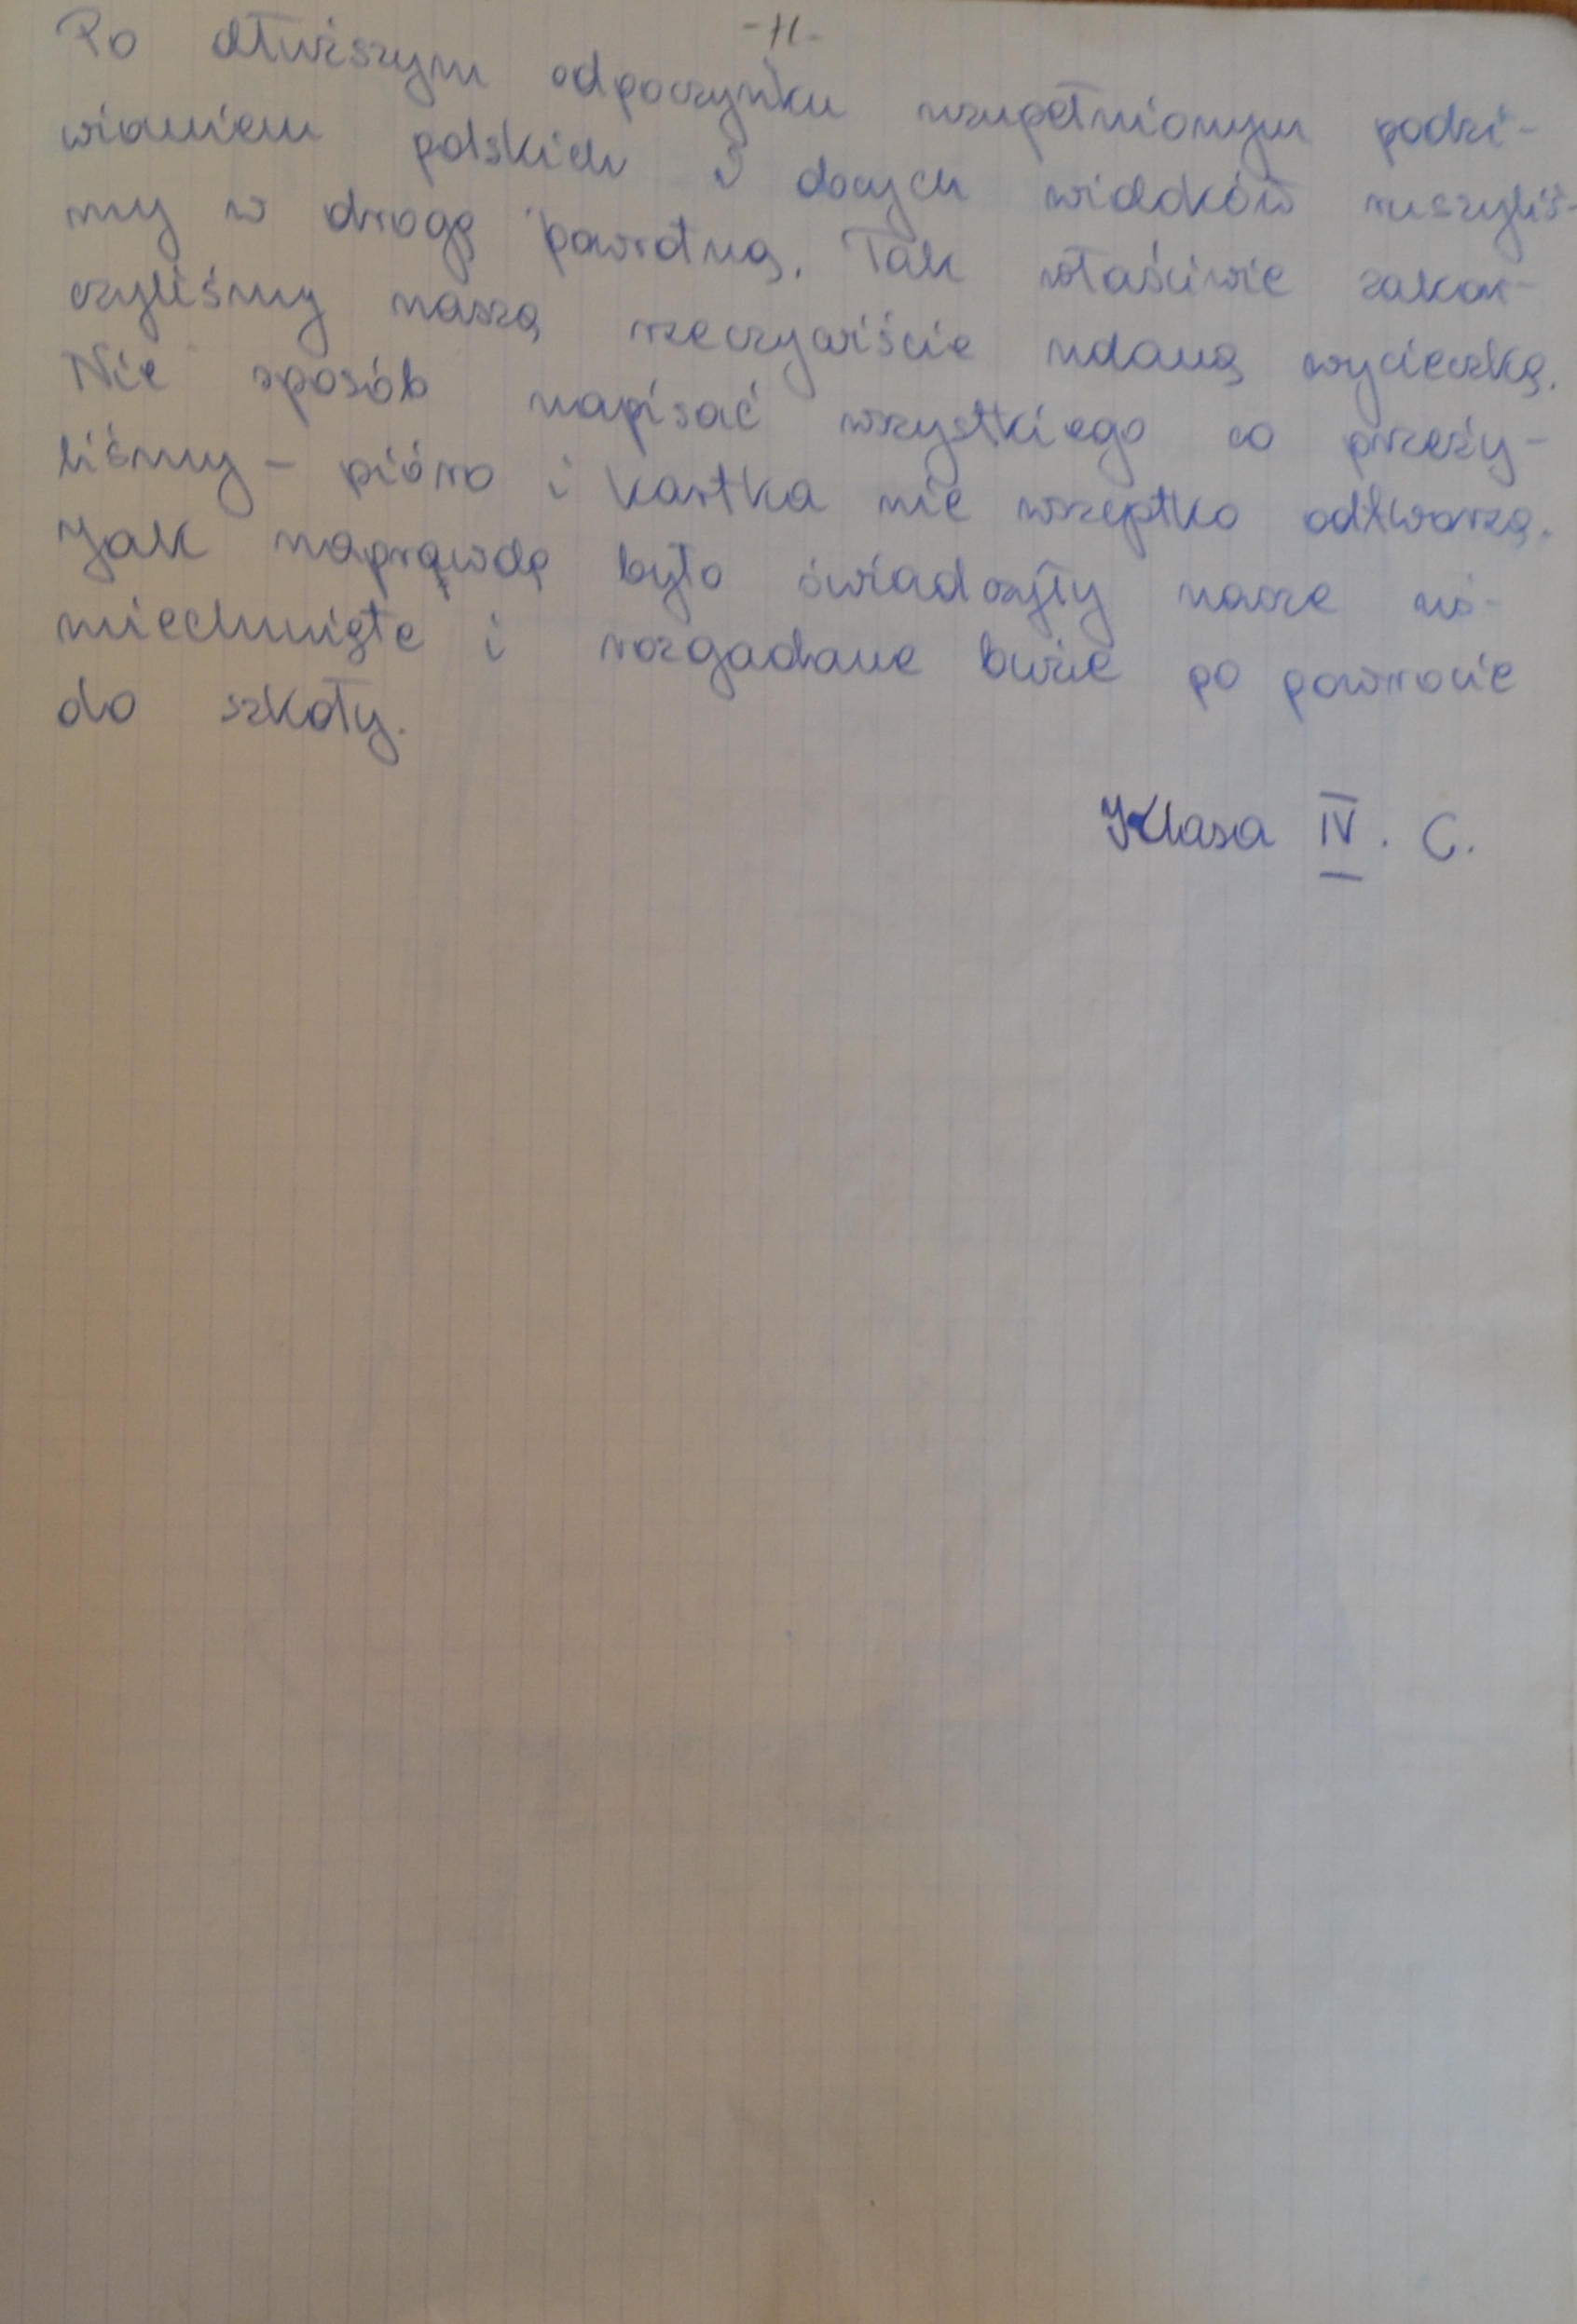 -11-
Po dłuższym odpoczynku uzupełnionym podzi-
wianiem polskich i widoków ruszyliś-
my w drogę powrotną. Tak właściwie zakoń-
czyliśmy naszą rzeczywiście udaną wycieczkę.
Nie sposób napisać wszystkiego co przeży-
liśmy - pióro i kartka nie wszystko odtworzą.
Jak naprawdę było świadczyły nasze uś-
miechnięte i rozgadane buzie po powrocie
do szkoły.
Klasa IV. C.